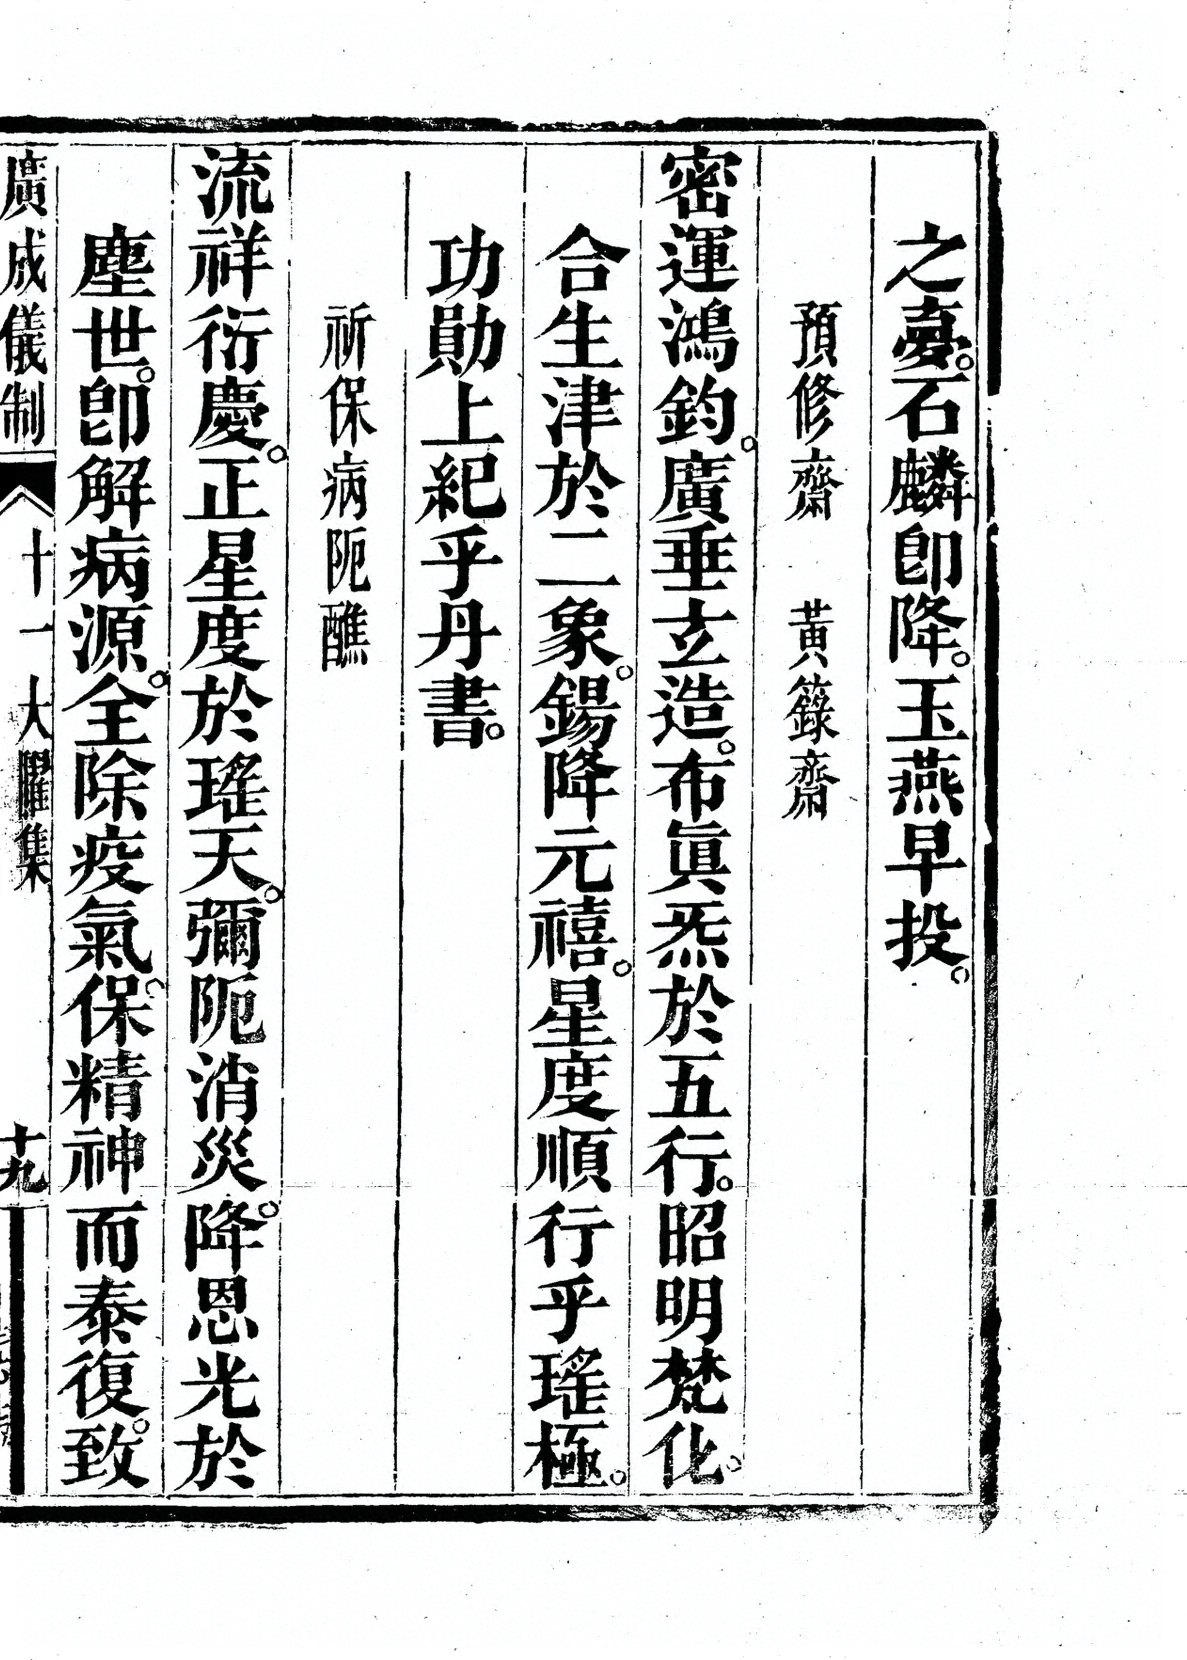 之臺。石麟卽降。玉燕早投。
預修齋　黃籙齋
密運鴻鈞。廣垂玄造。布眞炁於五行。昭明梵化。
合生津於二象。錫降元禧。星度順行乎瑤極。
功勛上紀乎丹書。
祈保病阨醮
流祥衍慶。正星度於瑤天。彌阨消災。降恩光於
塵世。卽解病源。全除疫氣。保精神而泰復。致
廣成儀制　十一大曜集　十九